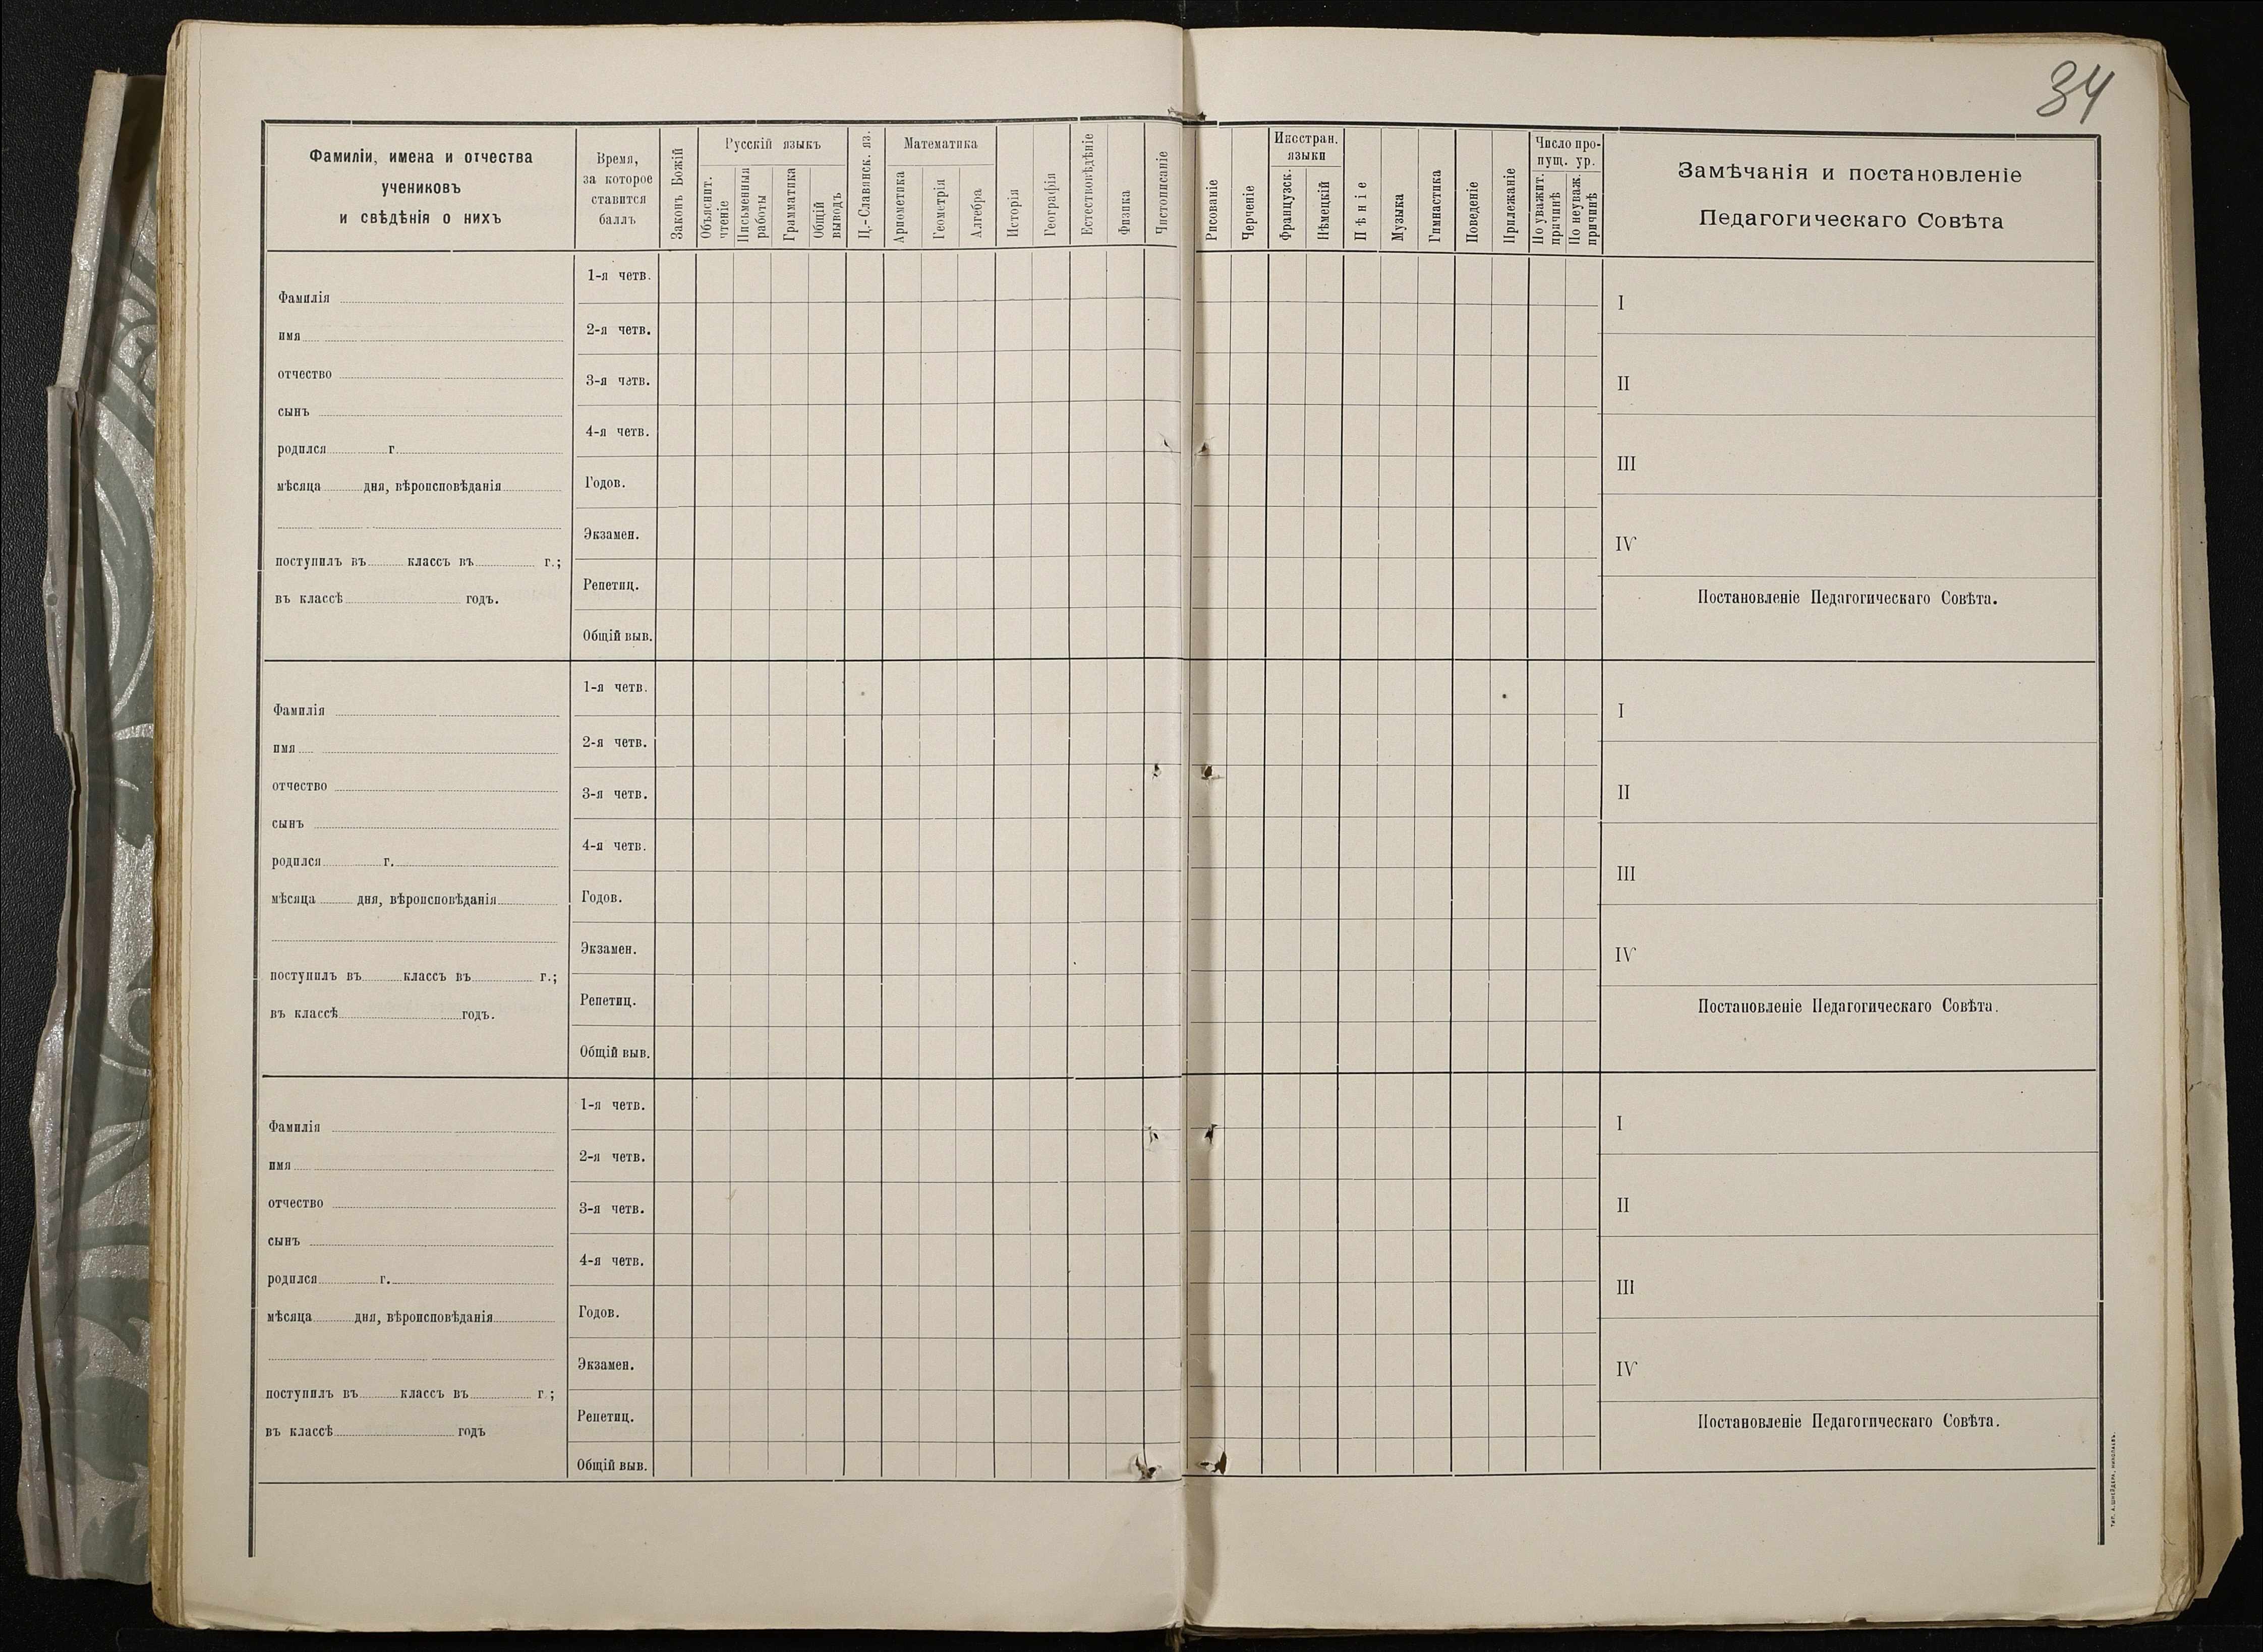 34
Фамиліи, имена и отчества
учениковъ
и свѣдѣнія о нихъ
Время,
за которое
ставится
баллъ
Законъ Божій
Русскій языкъ
Объяснит.
чтеніе
Письменныя
работы
Грамматика
Общій
выводъ
Ц.-Славянск. яз.
Математика
Ариѳметика
Геометрія
Алгебра
Исторія
Географія
Естествовѣдѣніе
Физика
Чистописаніе
Рисованіе
Черченіе
Иностран.
языки
Французск.
Нѣмецкій
Пѣніе
Музыка
Гимнастика
Поведеніе
Прилежаніе
Число про-
пущ. ур.
По уважит.
причинѣ
По неуваж.
причинѣ
Замѣчанія и постановленіе
Педагогическаго Совѣта
Фамилія
имя
отчество
сынъ
родился г
мѣсяца дня, вѣроисповѣданія
поступилъ въ классъ въ г.;
въ классѣ годъ.
1-я четв.
2-я четв.
3-я четв.
4-я четв.
Годов.
Экзамен.
Репетиц.
Общій выв.
I
II
III
IV
Постановленіе Педагогическаго Совѣта.
Фамилія
имя
отчество
сынъ
родился г.
мѣсяца дня, вѣроисповѣданія
поступилъ въ классъ въ г.;
въ классѣ годъ.
1-я четв.
2-я четв.
3-я четв.
4-я четв.
Годов.
Экзамен.
Репетиц.
Общій выв.
I
II
III
IV
Постановленіе Педагогическаго Совѣта.
Фамилія
имя
отчество
сынъ
родился г.
мѣсяца дня, вѣроисповѣданія
поступилъ въ классъ въ г ;
въ классѣ годъ
1-я четв.
2-я четв.
3-я четв.
4-я четв.
Годов.
Экзамен.
Репетиц.
Общій выв.
I
II
III
IV
Постановленіе Педагогическаго Совѣта.
ТИП. А. ШНЕЙДЕРА, НИКОЛАЕВЪ.